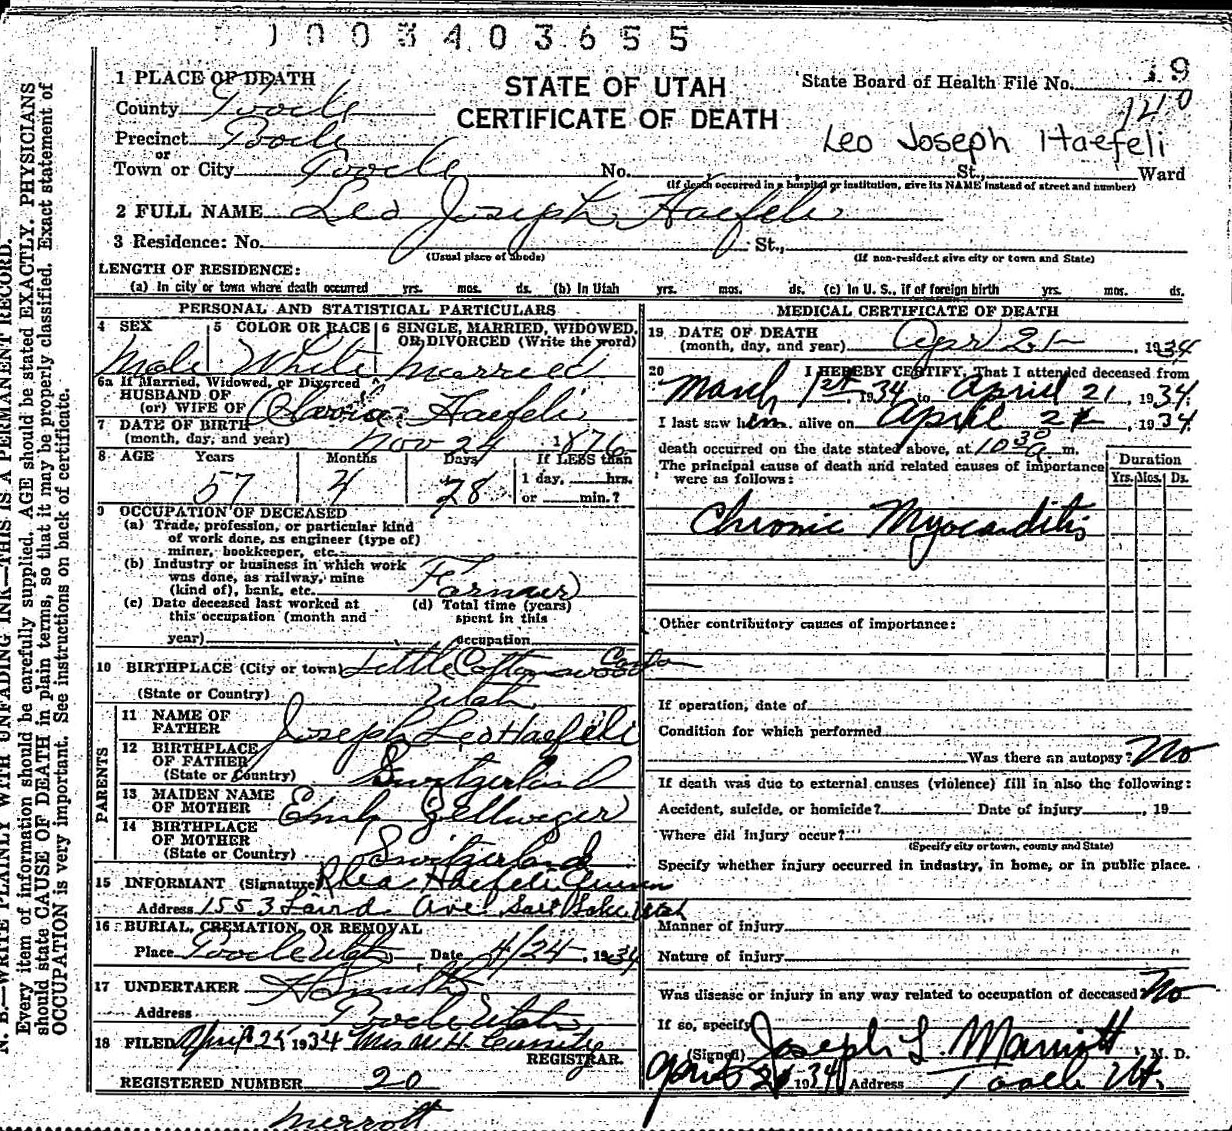 1003403655
1 PLACE OF DEATH
STATE OF UTAH
CERTIFICATE OF DEATH
State Board of Health File No. 19
140
County Tooele
Precinct Tooele
or
Leo Joseph Haefeli
Town or City Tooele No. St., Ward
(If death occurred in a hospital or institution, give its NAME instead of street and number)
2 FULL NAME Leo Joseph Haefeli
3 Residence: No. St.,
(Usual place of abode) (If non-resident give city or town and State)
LENGTH OF RESIDENCE:
(a) In city or town where death occurred yrs. mos. ds. (b) In Utah yrs. mos. ds. (c) In U. S., if of foreign birth yrs. mos. ds.
PERSONAL AND STATISTICAL PARTICULARS
4 SEX 5 COLOR OR RACE 6 SINGLE, MARRIED, WIDOWED, OR DIVORCED (Write the word)
Male White Married
6a If Married, Widowed, or Divorced
HUSBAND OF
(or) WIFE OF Haefeli
7 DATE OF BIRTH
(month, day, and year) Nov 24 1876
8 AGE Years Months Days If LESS than
57 4 28 1 day, hrs.
or min.?
9 OCCUPATION OF DECEASED
(a) Trade, profession, or particular kind
of work done, as engineer (type of)
miner, bookkeeper, etc.
(b) Industry or business in which work
was done, as railway, mine
(kind of), bank, etc. Farmer
(c) Date deceased last worked at
this occupation (month and
year)
(d) Total time (years)
spent in this
occupation
10 BIRTHPLACE (City or town) Little Cottonwood
(State or Country) Utah
PARENTS
11 NAME OF
FATHER Joseph Leo Haefeli
12 BIRTHPLACE
OF FATHER
(State or Country) Switzerland
13 MAIDEN NAME
OF MOTHER Emily Zellweger
14 BIRTHPLACE
OF MOTHER
(State or Country) Switzerland
15 INFORMANT (Signature) Rhea Haefeli
Address 1553 Laird Ave Salt Lake Utah
16 BURIAL, CREMATION, OR REMOVAL
Place Tooele Utah Date 4/24, 1934
17 UNDERTAKER
Address Tooele Utah
18 FILED April 25 1934 Mrs W. H.
REGISTRAR.
REGISTERED NUMBER 20
Merrott
MEDICAL CERTIFICATE OF DEATH
19 DATE OF DEATH
(month, day, and year) Apr 21, 1934
20 I HEREBY CERTIFY, That I attended deceased from
March 1st 1934 to April 21, 1934
I last saw him alive on April 21, 1934
death occurred on the date stated above, at 10 30 a m.
The principal cause of death and related causes of importance
were as follows:
Duration
Yrs. Mos. Ds.
Chronic Myocarditis
Other contributory causes of importance:
If operation, date of
Condition for which performed
Was there an autopsy? No
If death was due to external causes (violence) fill in also the following:
Accident, suicide, or homicide? Date of injury, 19
Where did injury occur?
(Specify city or town, county and State)
Specify whether injury occurred in industry, in home, or in public place.
Manner of injury
Nature of injury
Was disease or injury in any way related to occupation of deceased No
If so, specify
(Signed) Joseph L Marriott, M. D.
1934 Address Tooele Ut.
N. B.—WRITE PLAINLY WITH UNFADING INK—THIS IS A PERMANENT RECORD.
Every item of information should be carefully supplied. AGE should be stated EXACTLY. PHYSICIANS
should state CAUSE OF DEATH in plain terms, so that it may be properly classified. Exact statement of
OCCUPATION is very important. See instructions on back of certificate.